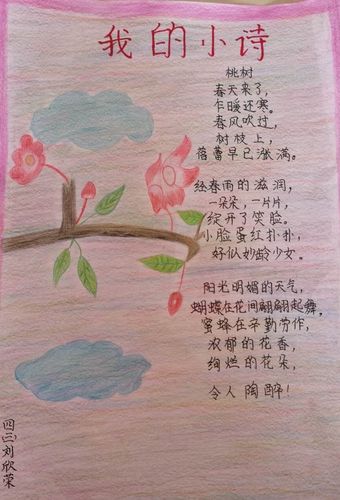 我的小诗
桃树
春天来了，
乍暖还寒。
春风吹过，
树枝上，
蓓蕾早已涨满。
经春雨的滋润，
一朵朵，一片片，
绽开了笑脸。
小脸蛋红扑扑，
好似妙龄少女。
阳光明媚的天气，
蝴蝶在花间翩翩起舞。
蜜蜂在辛勤劳作，
浓郁的花香，
绚烂的花朵，
令人陶醉！
四三刘欣荣